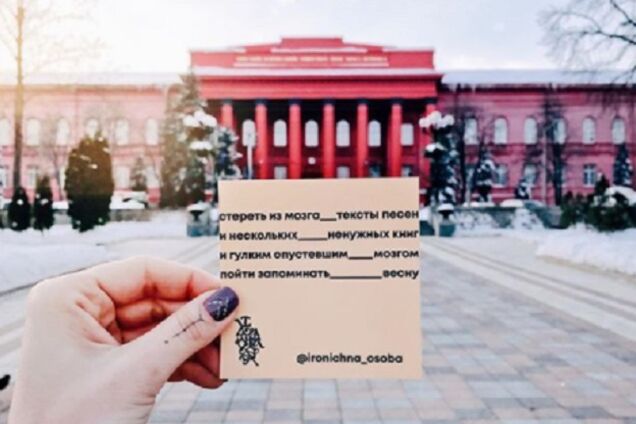 стереть из мозга___тексты песен
и нескольких____ненужных книг
и гулким опустевшим___мозгом
пойти запоминать_______весну
@ironichna_osoba